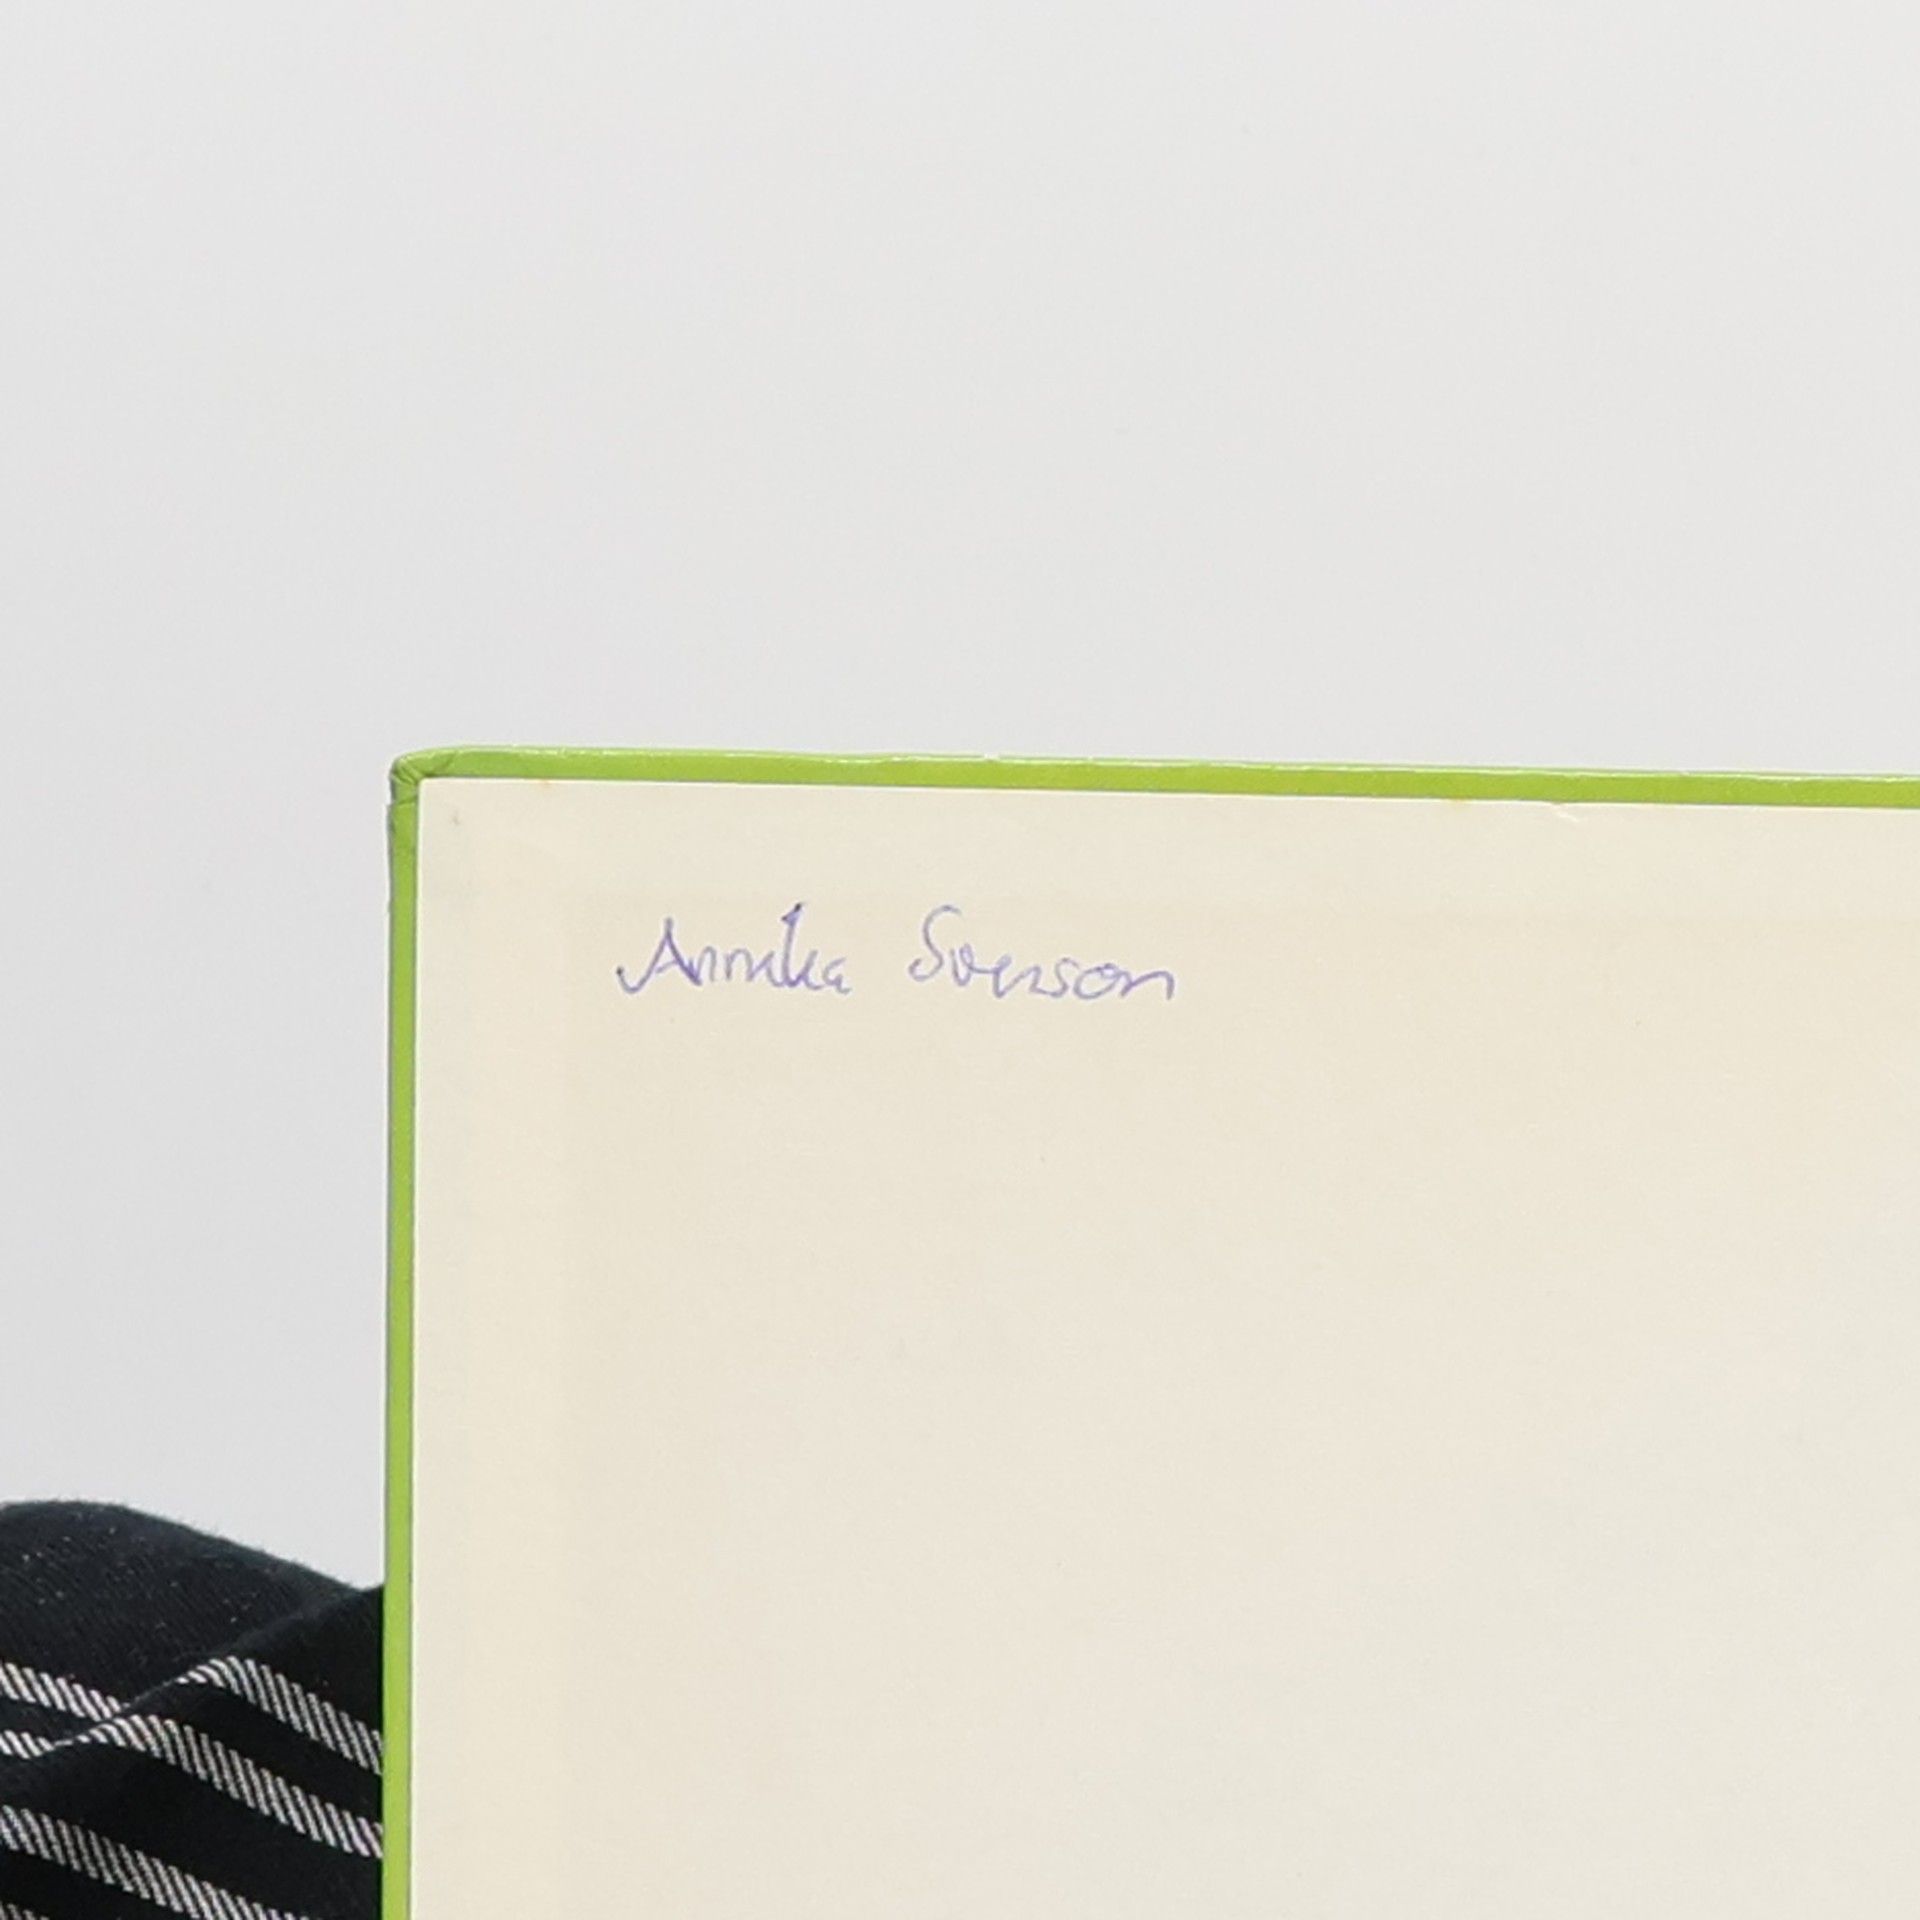 Annika Svenson